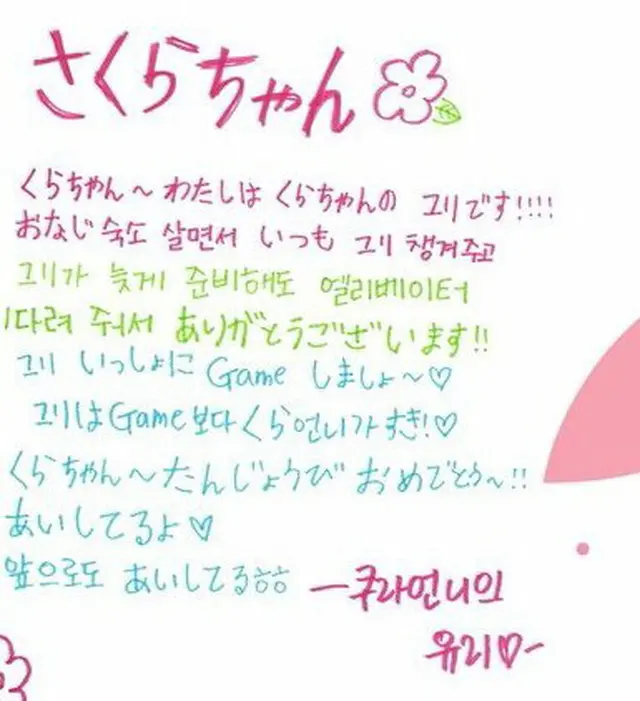 さくらちゃん
くらちゃん～わたしは くらちゃんの ユリです!!!!
おなじ 숙소 살면서 いつも ユリ 챙겨주고
ユリ가 늦게 준비해도 엘리베이터
다려 줘서 ありがとうございます!!
ユリ いっしょに Game しましょ～♡
ユリは Game보다 くら언니가 すき!♡
くらちゃん～たんじょうび おめでとう～!!
あいしてるよ♡
앞으로도 あいしてるㅎㅎ
ー쿠라언니의
유리♡ー